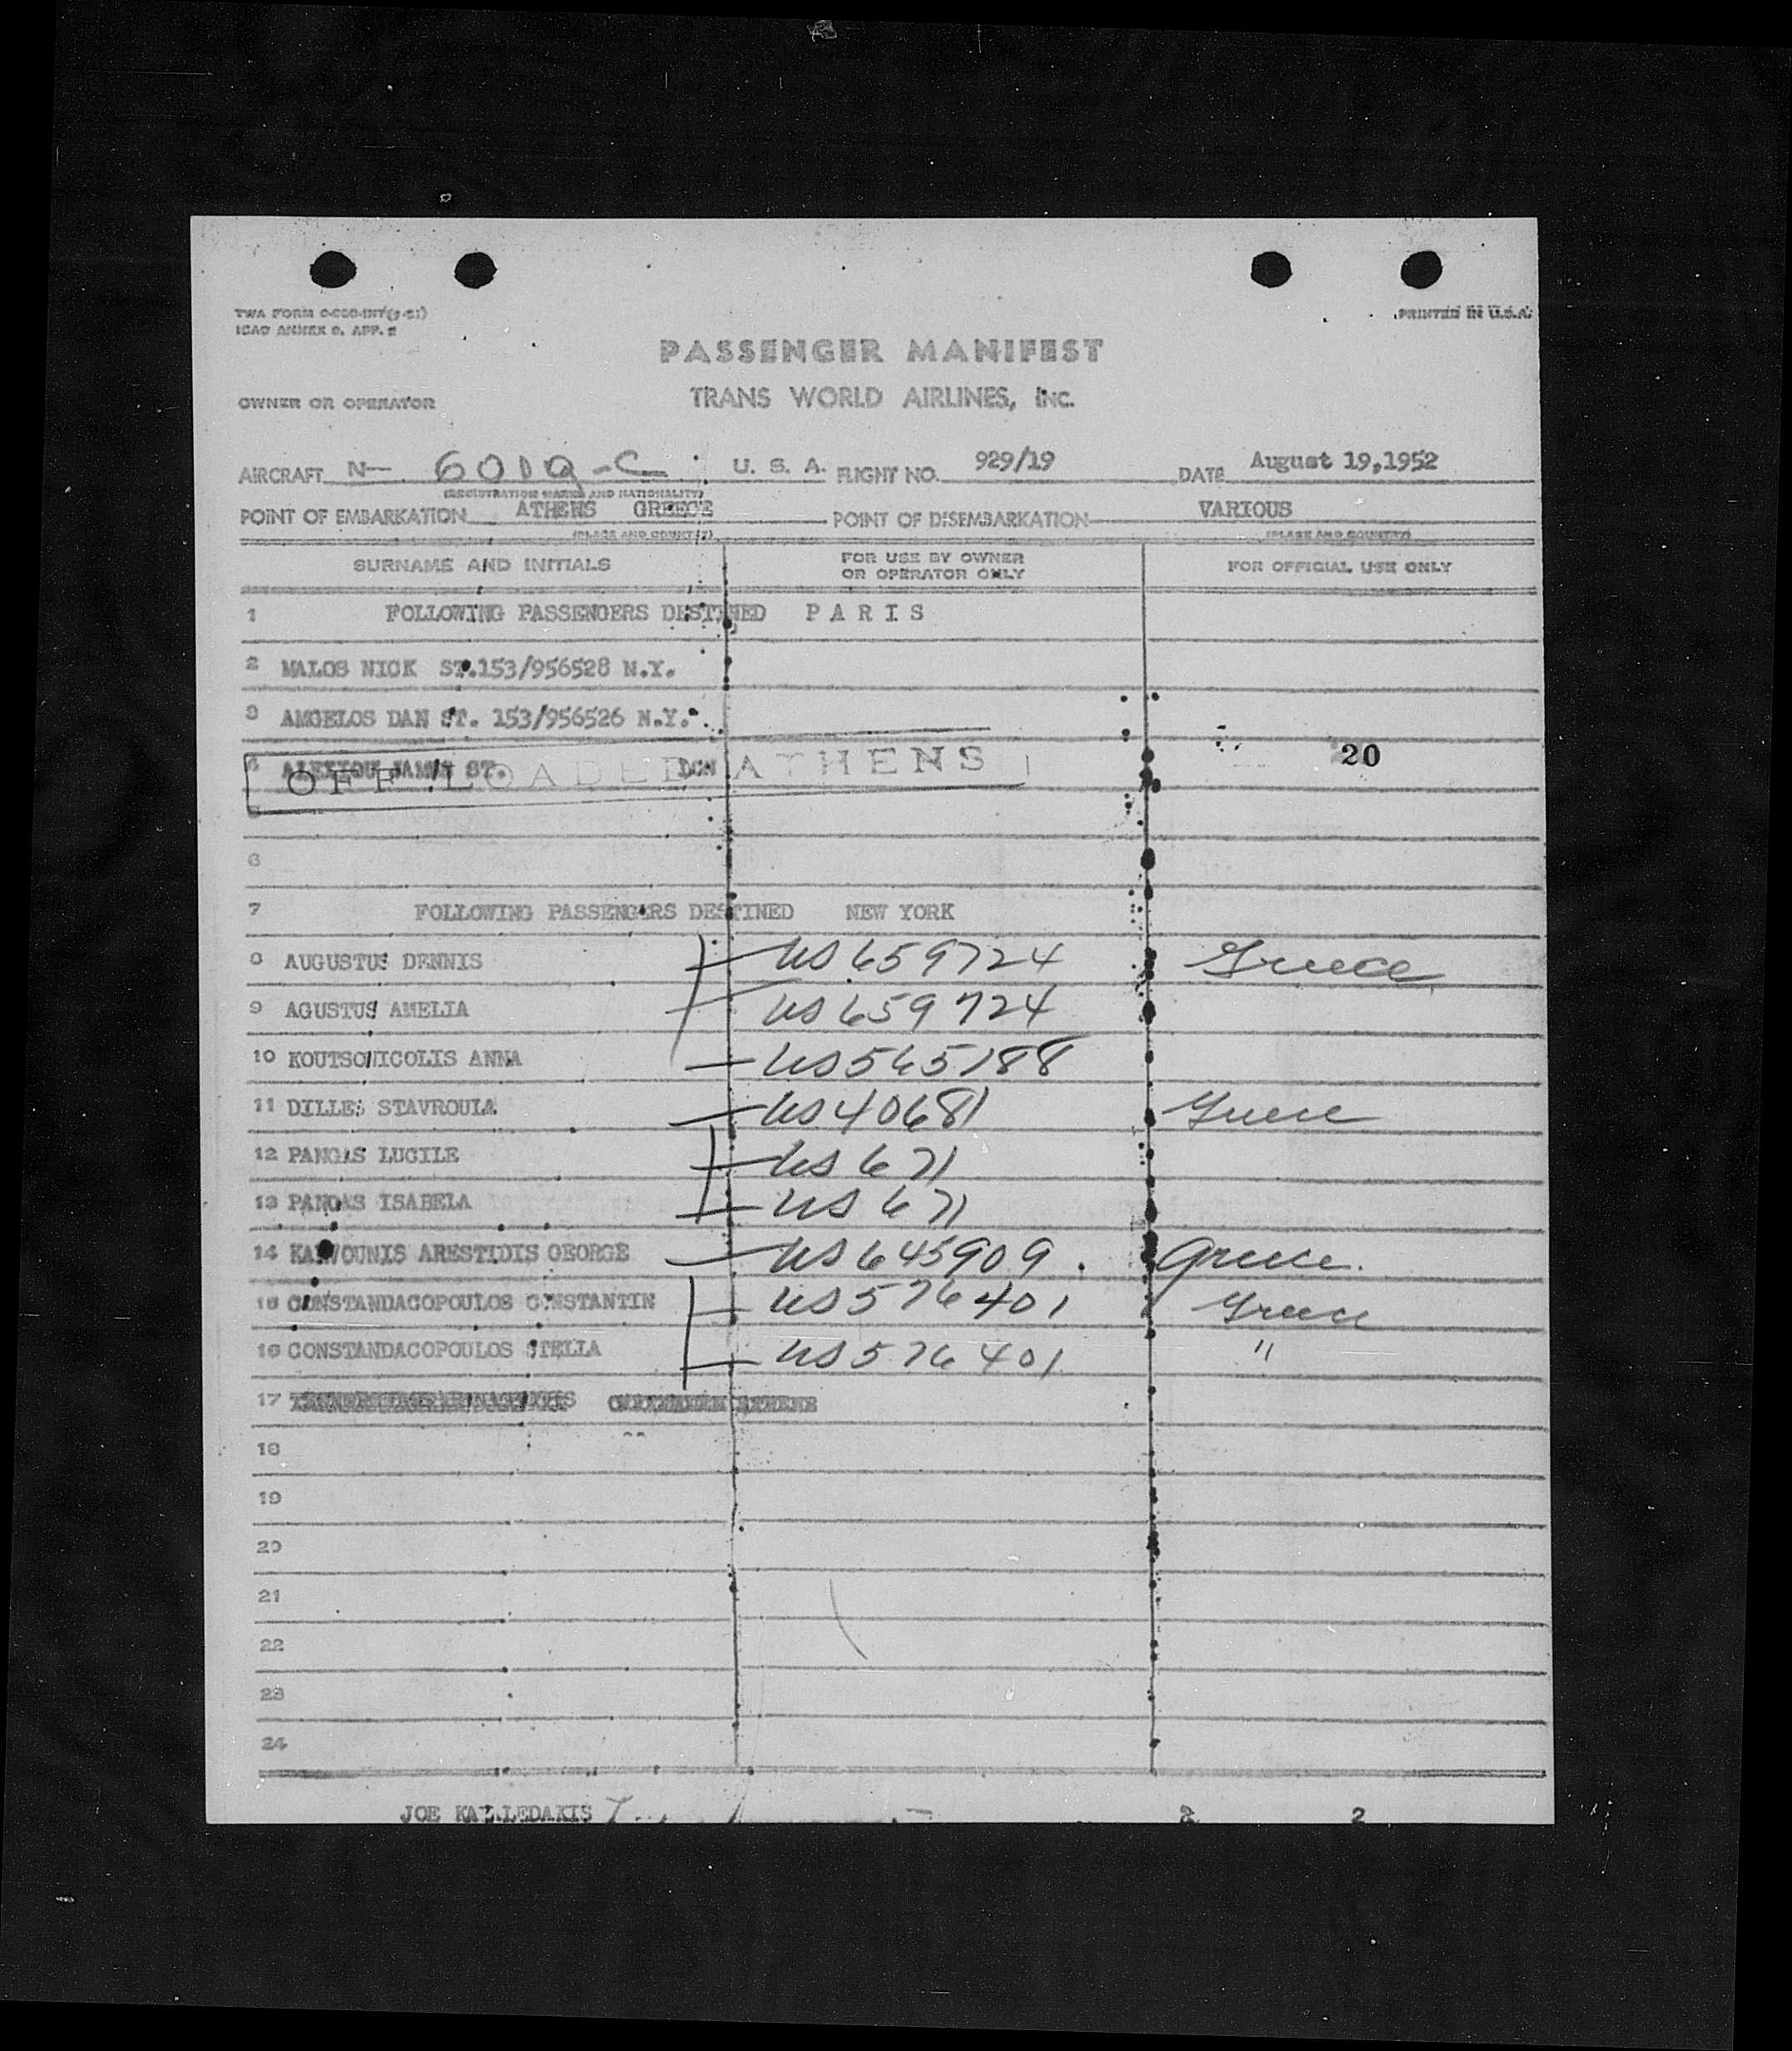 TWA FORM
ICAO ANNEX 9, APP. 5
PRINTED IN U.S.A.
PASSENGER MANIFEST
OWNER OR OPERATOR TRANS WORLD AIRLINES, INC.
AIRCRAFT N- U. S. A. FLIGHT NO. 929/19 DATE August 19,1952
(REGISTRATION MARKS AND NATIONALITY)
POINT OF EMBARKATION ATHENS GREECE POINT OF DISEMBARKATION VARIOUS
(PLACE AND COUNTRY) (PLACE AND COUNTRY)
SURNAME AND INITIALS FOR USE BY OWNER OR OPERATOR ONLY FOR OFFICIAL USE ONLY
1 FOLLOWING PASSENGERS DESTINED P A R I S
2 MALOS NICK ST.153/956528 N.Y.
3 AMGELOS DAN ST. 153/956526 N.Y.
4 ALEXIOU JAMES ST. 20
OFF LOADED ATHENS
6
7 FOLLOWING PASSENGERS DESTINED NEW YORK
8 AUGUSTUS DENNIS US 659724 Greece
9 AGUSTUS AMELIA US 659724
10 KOUTSONICOLIS ANNA US 565188
11 DILLES STAVROULA US 40681 Greece
12 PANGAS LUCILE US 671
13 PANGAS ISABELA US 671
14 KARVOUNIS ARESTIDIS GEORGE US 645909 Greece
15 CONSTANDACOPOULOS CONSTANTIN US 576401 Greece
16 CONSTANDACOPOULOS STELLA US 576401 "
17
18
19
20
21
22
23
24
JOE KALLEDAKIS 2 2